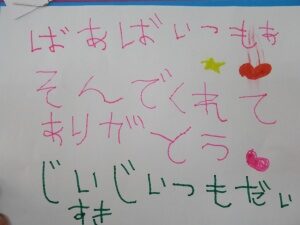 ばあばいつもあ
そんでくれて
ありがとう
じいじいつもだい
すき